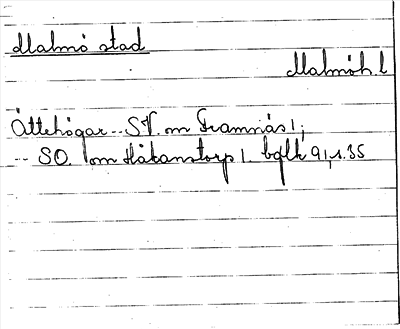 Malmö stad
Malmöh. l
Ättehögar -- SV. om Framnäs 1;
-- SO. om Håkanstorp 1. bqlk 91, s. 35